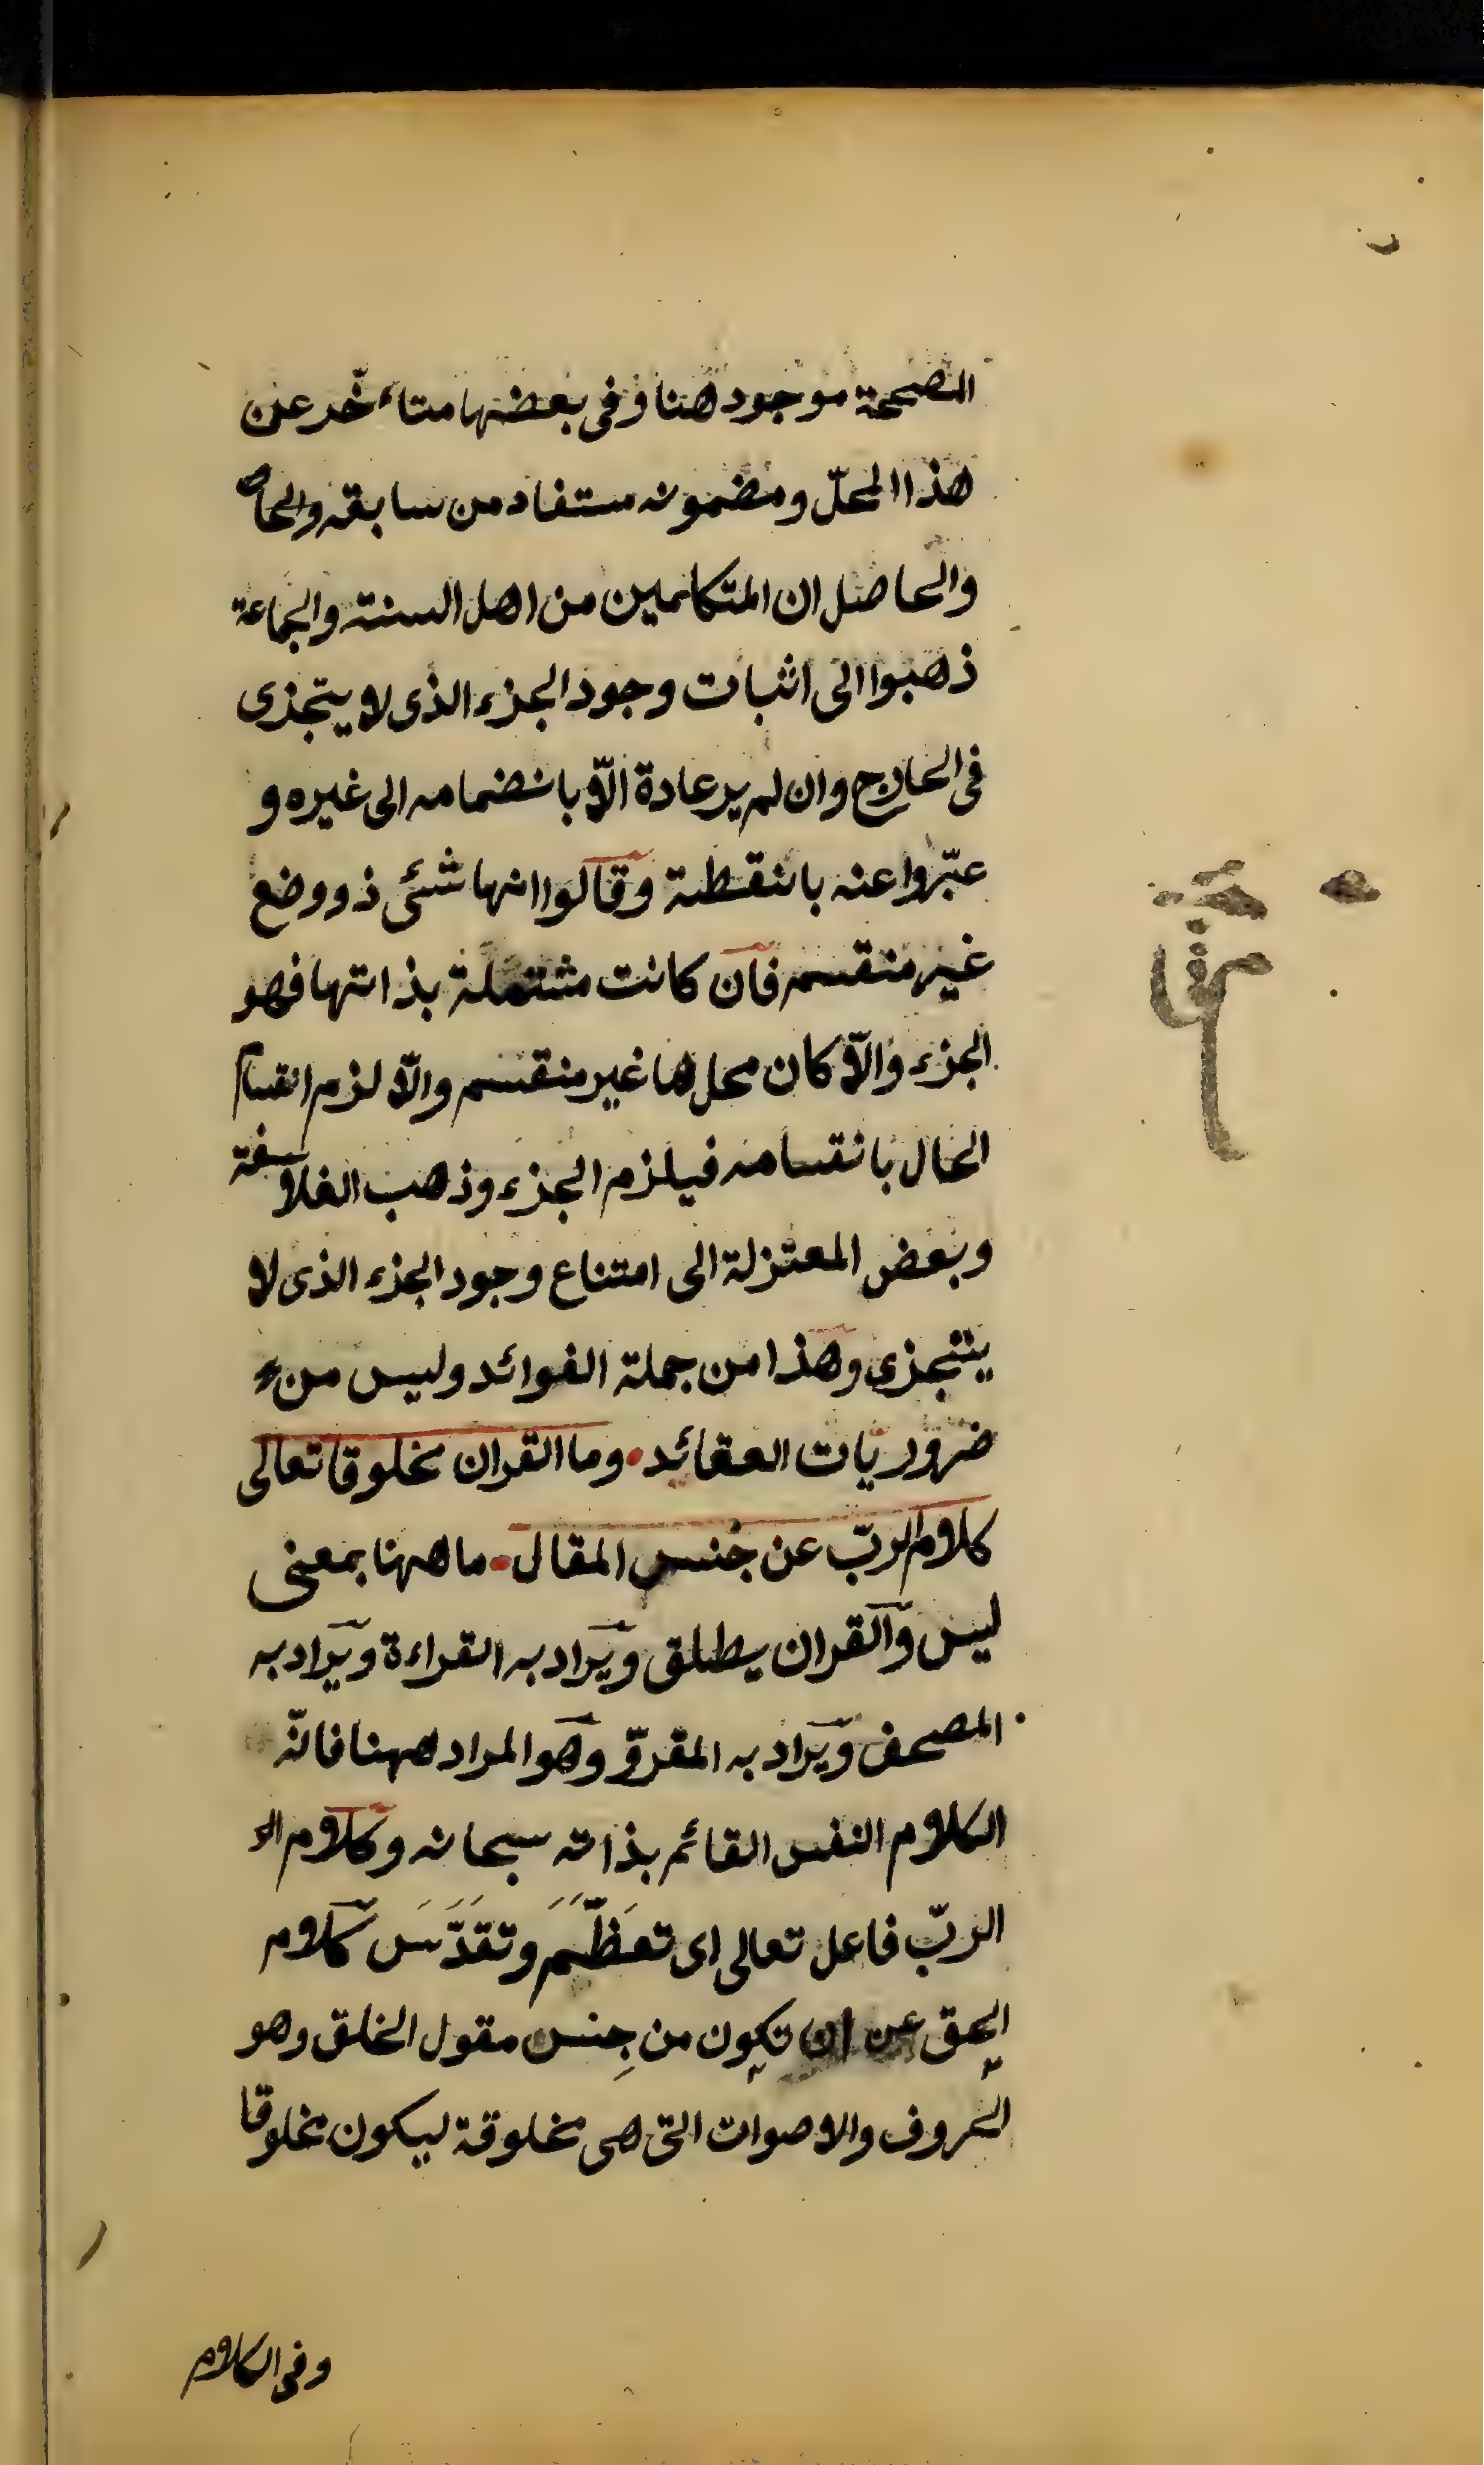 المصححة موجود هنا وفى بعضها متأخّر عن
هذا المحلّ ومضمونه مستفاد من سابقه والحاص
والحاصل ان المتكلمين من اهل السنة والجماعة
ذهبوا الى اثبات وجود الجزء الذى لا يتجزى
فى الخارج وان لم ير عادة الّا بانضمامه الى غيره و
عبّروا عنه بالنقطة وقالوا انها شئ ذو وضع
غير منقسم فان كانت مشتملة بذاتها فهو
الجزء والّا كان محلها غير منقسم والّا لزم انقسام
الحال بانقسامه فيلزم الجزء وذهب الفلاسفة
وبعض المعتزلة الى امتناع وجود الجزء الذى لا
يتجزى وهذا من جملة الفوائد وليس من
ضروريات العقائد • وما القران مخلوقا تعالى
كلام الربّ عن جنس المقال • ما ههنا بمعنى
ليس والقران يطلق ويراد به القراءة ويراد به
المصحف ويراد به المقروّ وهو المراد ههنا فانّه
الكلام النفس القائم بذاته سبحانه وكلام الر
الربّ فاعل تعالى اى تعظّمَ وتقدّسَ كلام
الحق عن ان تكون من جِنس مقول الخلق وهو
الحروف والاصوات التى هى مخلوقة ليكون مخلوقا
وفى الكلام